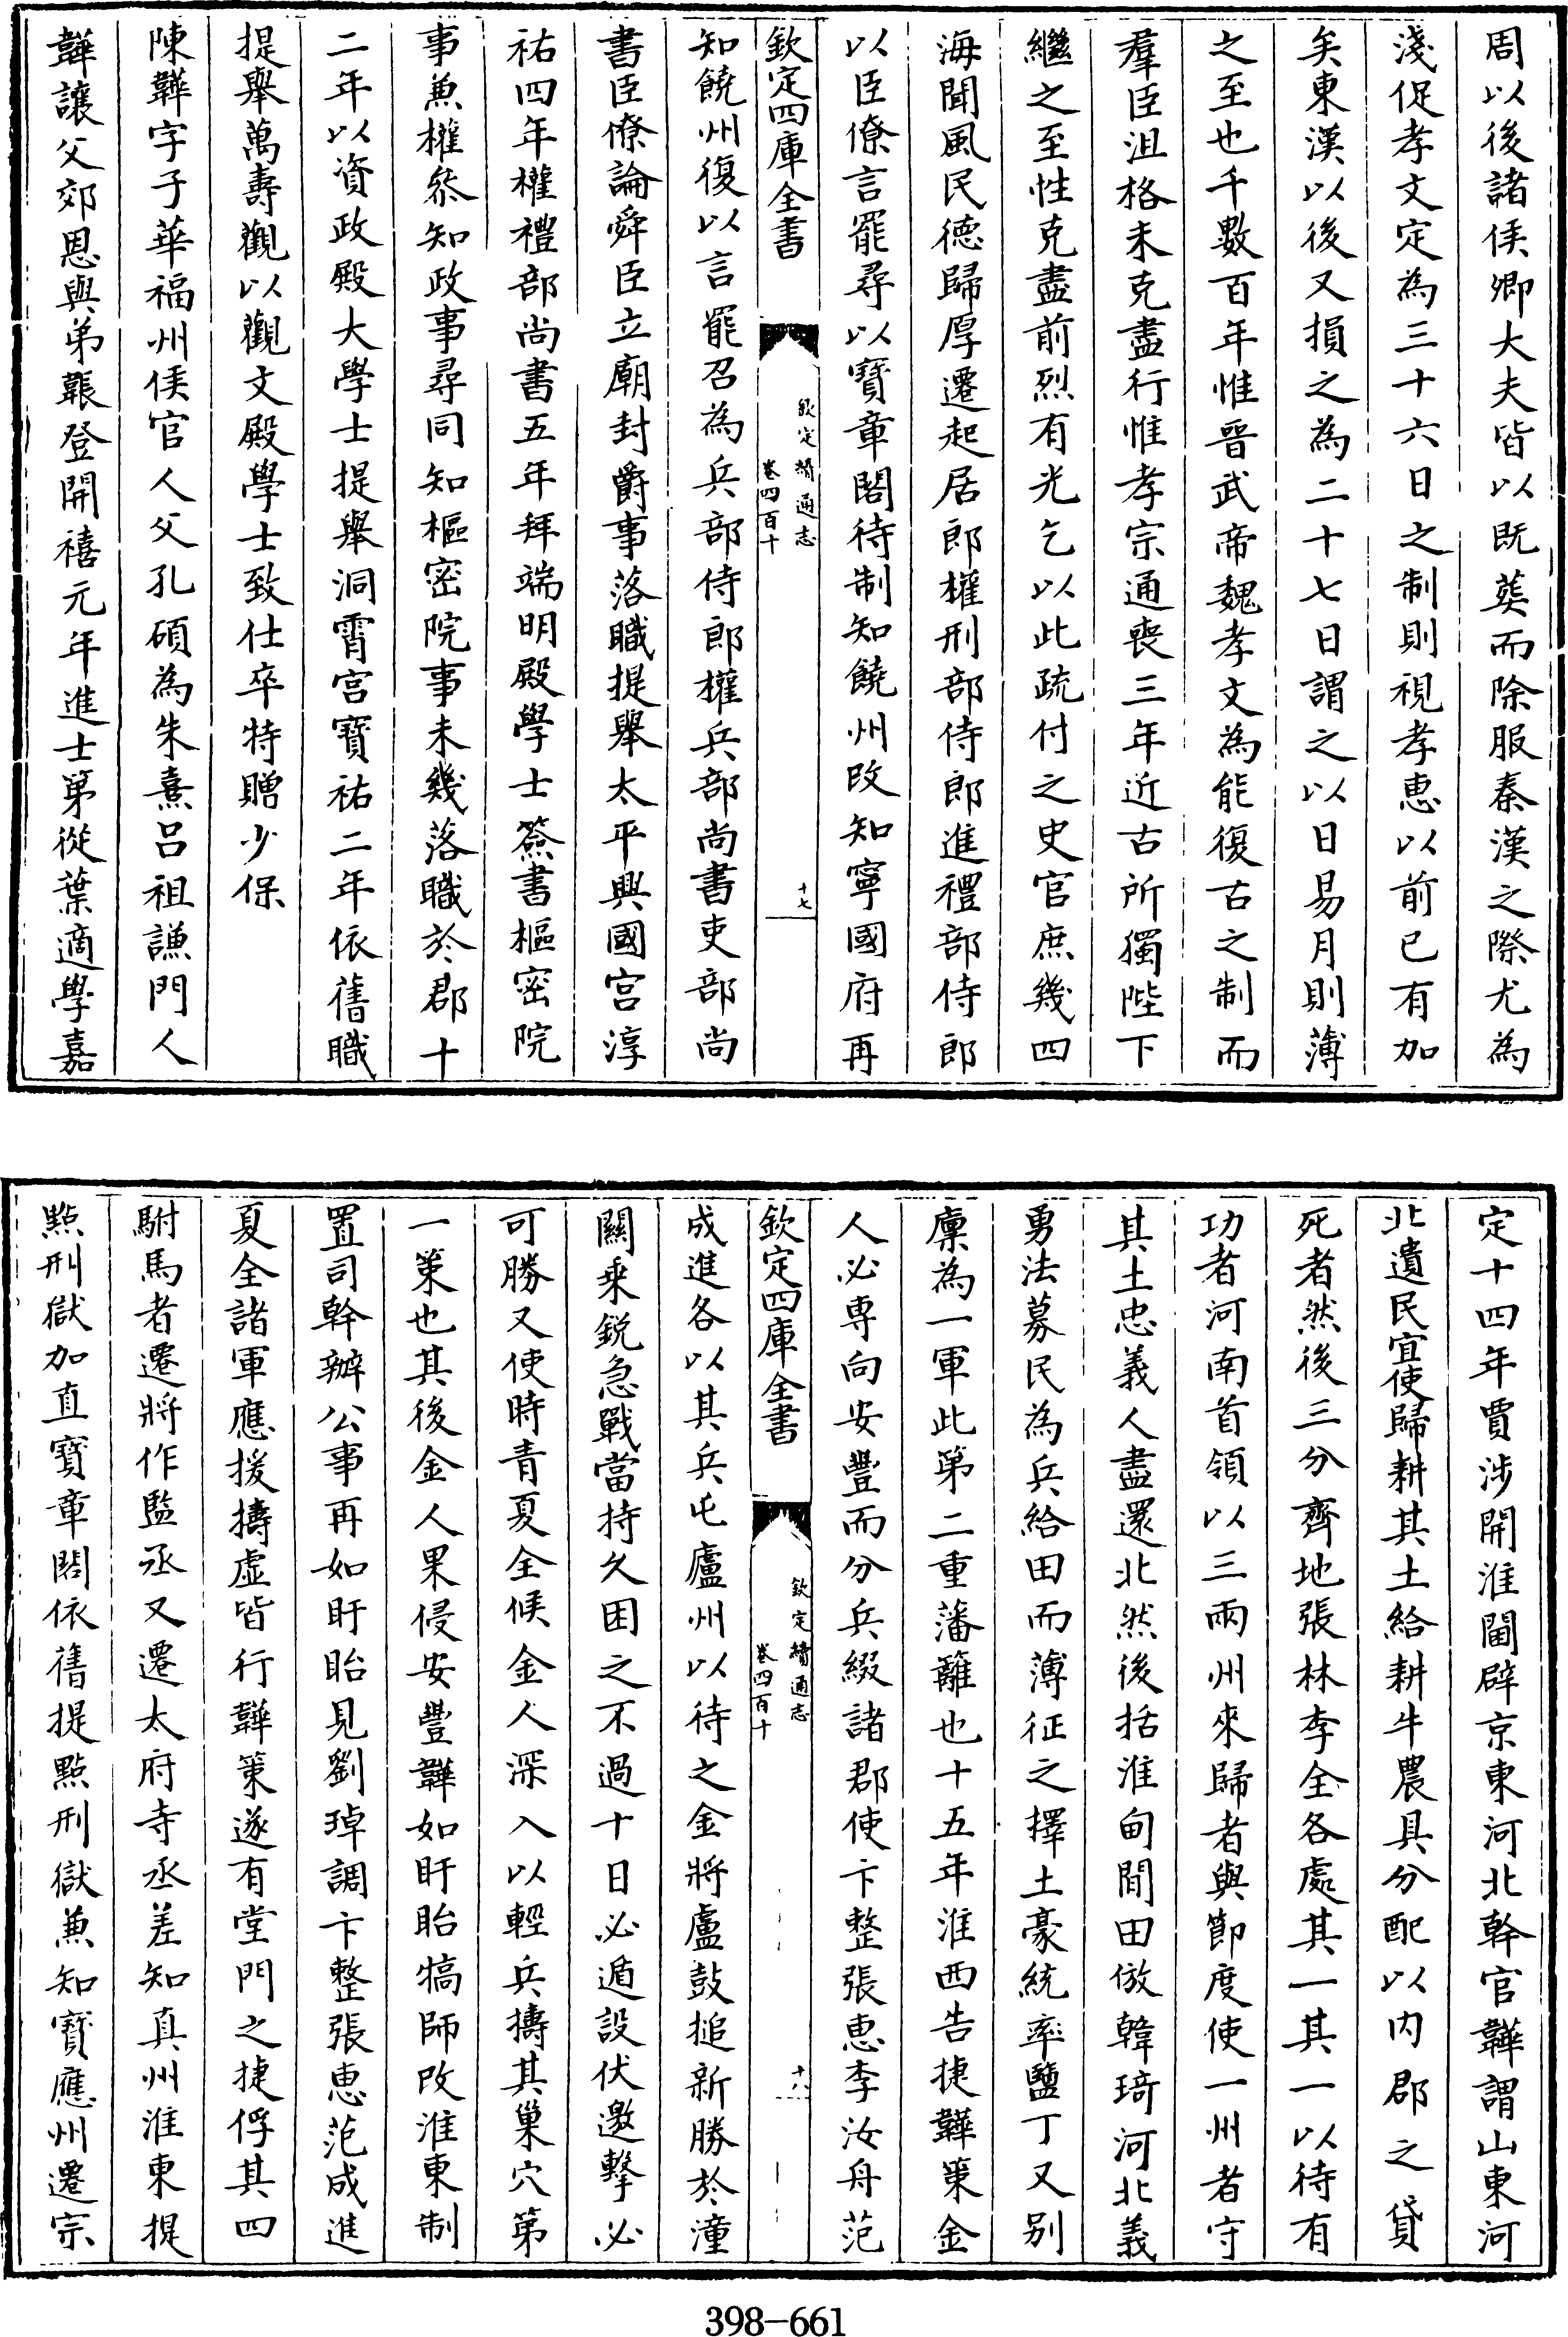 周以後諸侯卿大夫皆以既葬而除服秦漢之際尤為
淺促孝文定為三十六日之制則視孝惠以前已有加
矣東漢以後又損之為二十七日謂之以日易月則薄
之至也千數百年惟晉武帝魏孝文為能復古之制而
羣臣沮格未克盡行惟孝宗通喪三年近古所獨陛下
繼之至性克盡前烈有光乞以此疏付之史官庶幾四
海聞風民德歸厚遷起居郎權刑部侍郎進禮部侍郎
以臣僚言罷尋以寶章閣待制知饒州改知寧國府再
欽定四庫全書
欽定續通志
卷四百十
十七
知饒州復以言罷召為兵部侍郎權兵部尚書吏部尚
書臣僚論舜臣立廟封爵事落職提舉太平興國宮淳
祐四年權禮部尚書五年拜端明殿學士簽書樞密院
事兼權叅知政事尋同知樞密院事未幾落職於郡十
二年以資政殿大學士提舉洞霄宮寶祐二年依舊職
提舉萬壽觀以觀文殿學士致仕卒特贈少保
陳韡字子華福州侯官人父孔碩為朱熹呂祖謙門人
韡讓父郊恩與弟韔登開禧元年進士第從葉適學嘉
定十四年賈涉開淮閫辟京東河北幹官韡謂山東河
北遺民宜使歸耕其土給耕牛農具分配以内郡之貸
死者然後三分齊地張林李全各處其一其一以待有
功者河南首領以三兩州來歸者與節度使一州者守
其土忠義人盡還北然後括淮甸間田倣韓琦河北義
勇法募民為兵給田而薄征之擇土豪統率鹽丁又别
廩為一軍此第二重藩籬也十五年淮西告捷韡策金
人必專向安豐而分兵綴諸郡使卞整張惠李汝舟范
欽定四庫全書
欽定續通志
卷四百十
十八
成進各以其兵屯廬州以待之金將盧鼓搥新勝於潼
關乘銳急戰當持久困之不過十日必遁設伏邀擊必
可勝又使時青夏全候金人深入以輕兵擣其巢穴第
一策也其後金人果侵安豐韡如盱眙犒師改淮東制
置司幹辦公事再如盱眙見劉琸調卞整張惠范成進
夏全諸軍應援擣虛皆行韡策遂有堂門之捷俘其四
駙馬者遷將作監丞又遷太府寺丞差知真州淮東提
點刑獄加直寶章閣依舊提點刑獄兼知寶應州遷宗
398-661